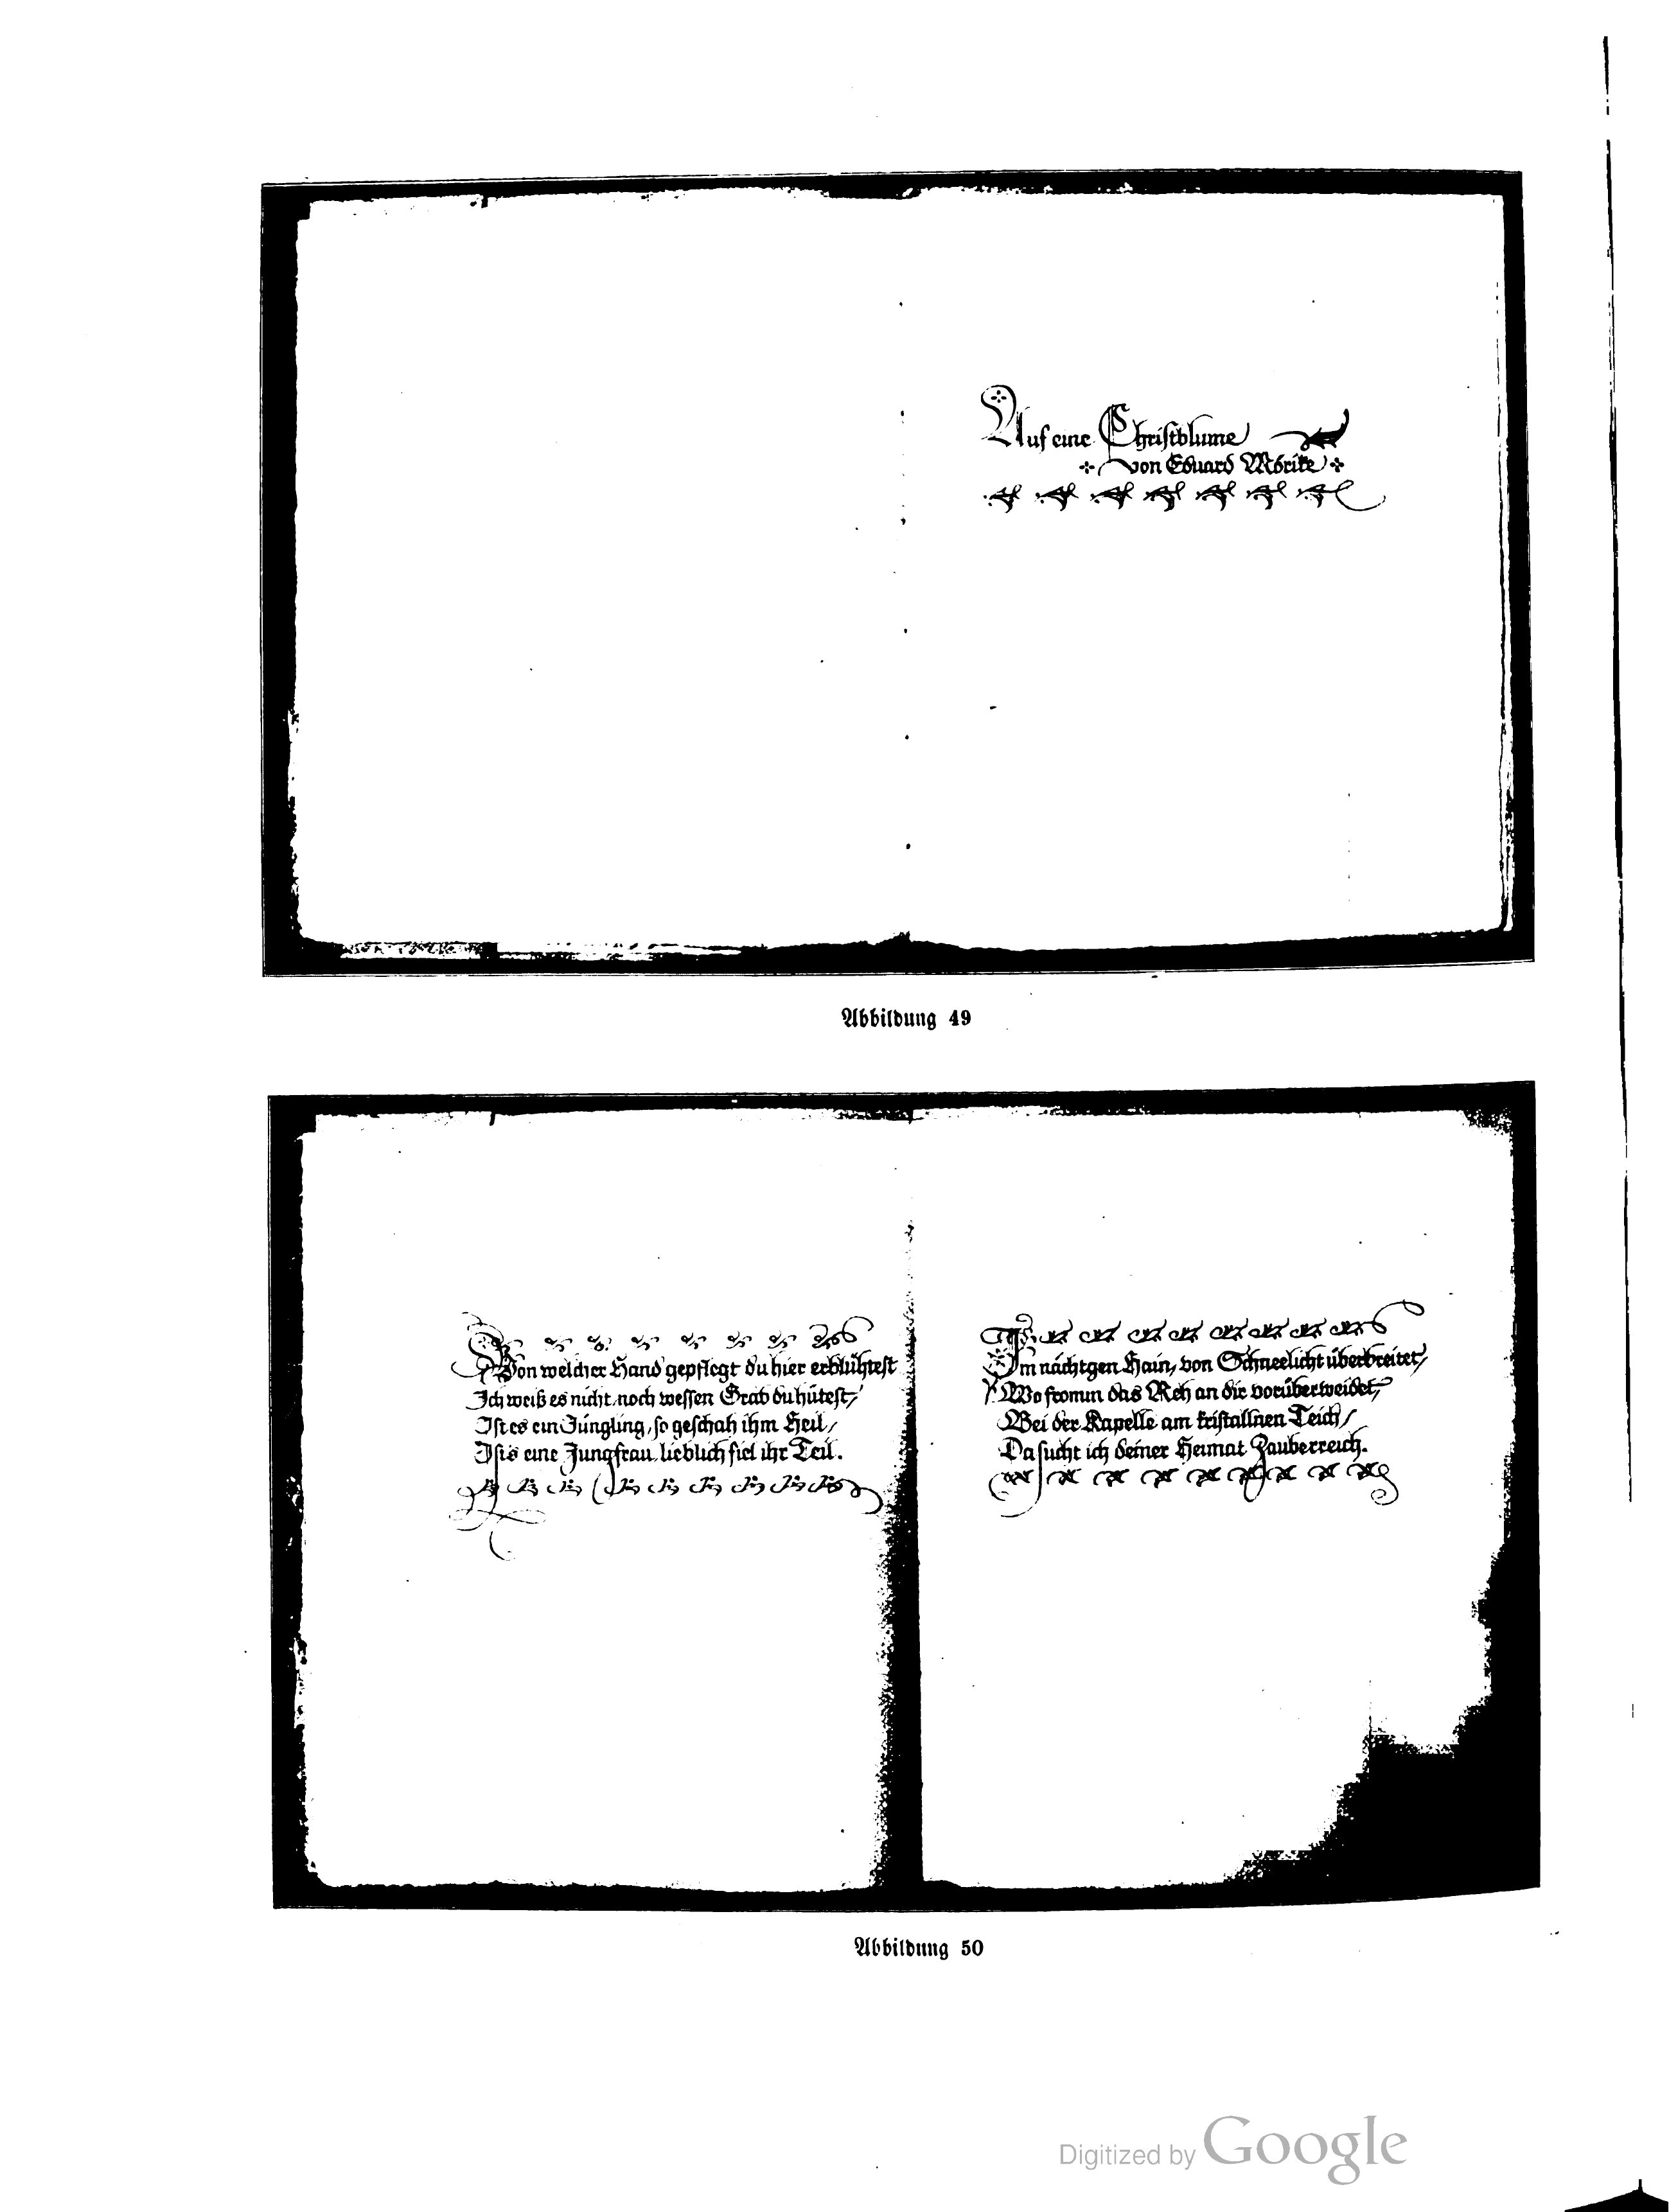 Auf eine Christblume
von Eduard Mörike
Abbildung 49
Von welcher Hand gepflegt du hier erblühtest
Ich weiß es nicht, noch wessen Grab du hütest,
Ist es ein Jüngling, so geschah ihm Heil,
Ists eine Jungfrau, lieblich fiel ihr Teil.
Im nächtgen Hain, von Schneelicht überbreitet,
Wo fromm das Reh an dir vorüberweidet,
Bei der Kapelle am kristallnen Teich,
Da sucht ich deiner Heimat Zauberreich.
Abbildung 50
Digitized by Google